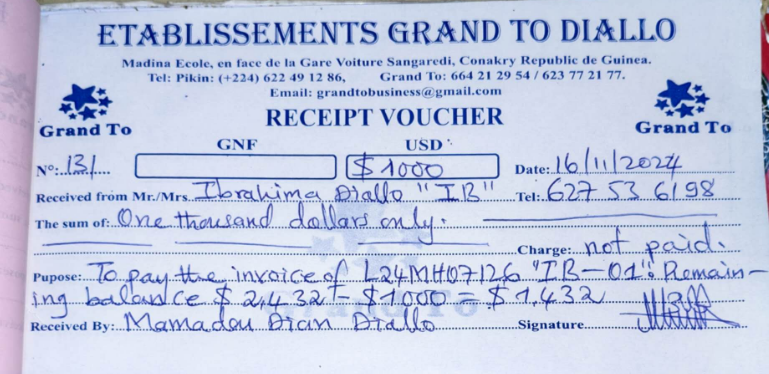 ETABLISSEMENTS GRAND TO DIALLO
Madina Ecole, en face de la Gare Voiture Sangaredi, Conakry Republic de Guinea.
Tel: Pikin: (+224) 622 49 12 86, Grand To: 664 21 29 54 / 623 77 21 77.
Email: grandtobusiness@gmail.com
Grand To RECEIPT VOUCHER Grand To
GNF USD
N°: 131 $1000 Date: 16/11/2024
Received from Mr./Mrs. Ibrahima Diallo "IB" Tel: 627 53 61 98
The sum of: One thousand dollars only.
Charge: not paid.
Pupose: To pay the invoice of L24MH07126 "IB-01". Remain-
ing balance $2,432 - $1000 = $1,432
Received By: Mamadou Dian Diallo Signature